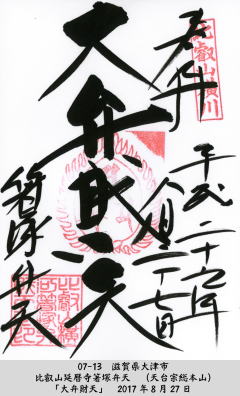 比叡山横川
奉拝
平成二十九年
八月二十七日
大弁財天
箸塚弁天
07-13 滋賀県大津市
比叡山延暦寺箸塚弁天 (天台宗総本山)
「大弁財天」 2017年8月27日